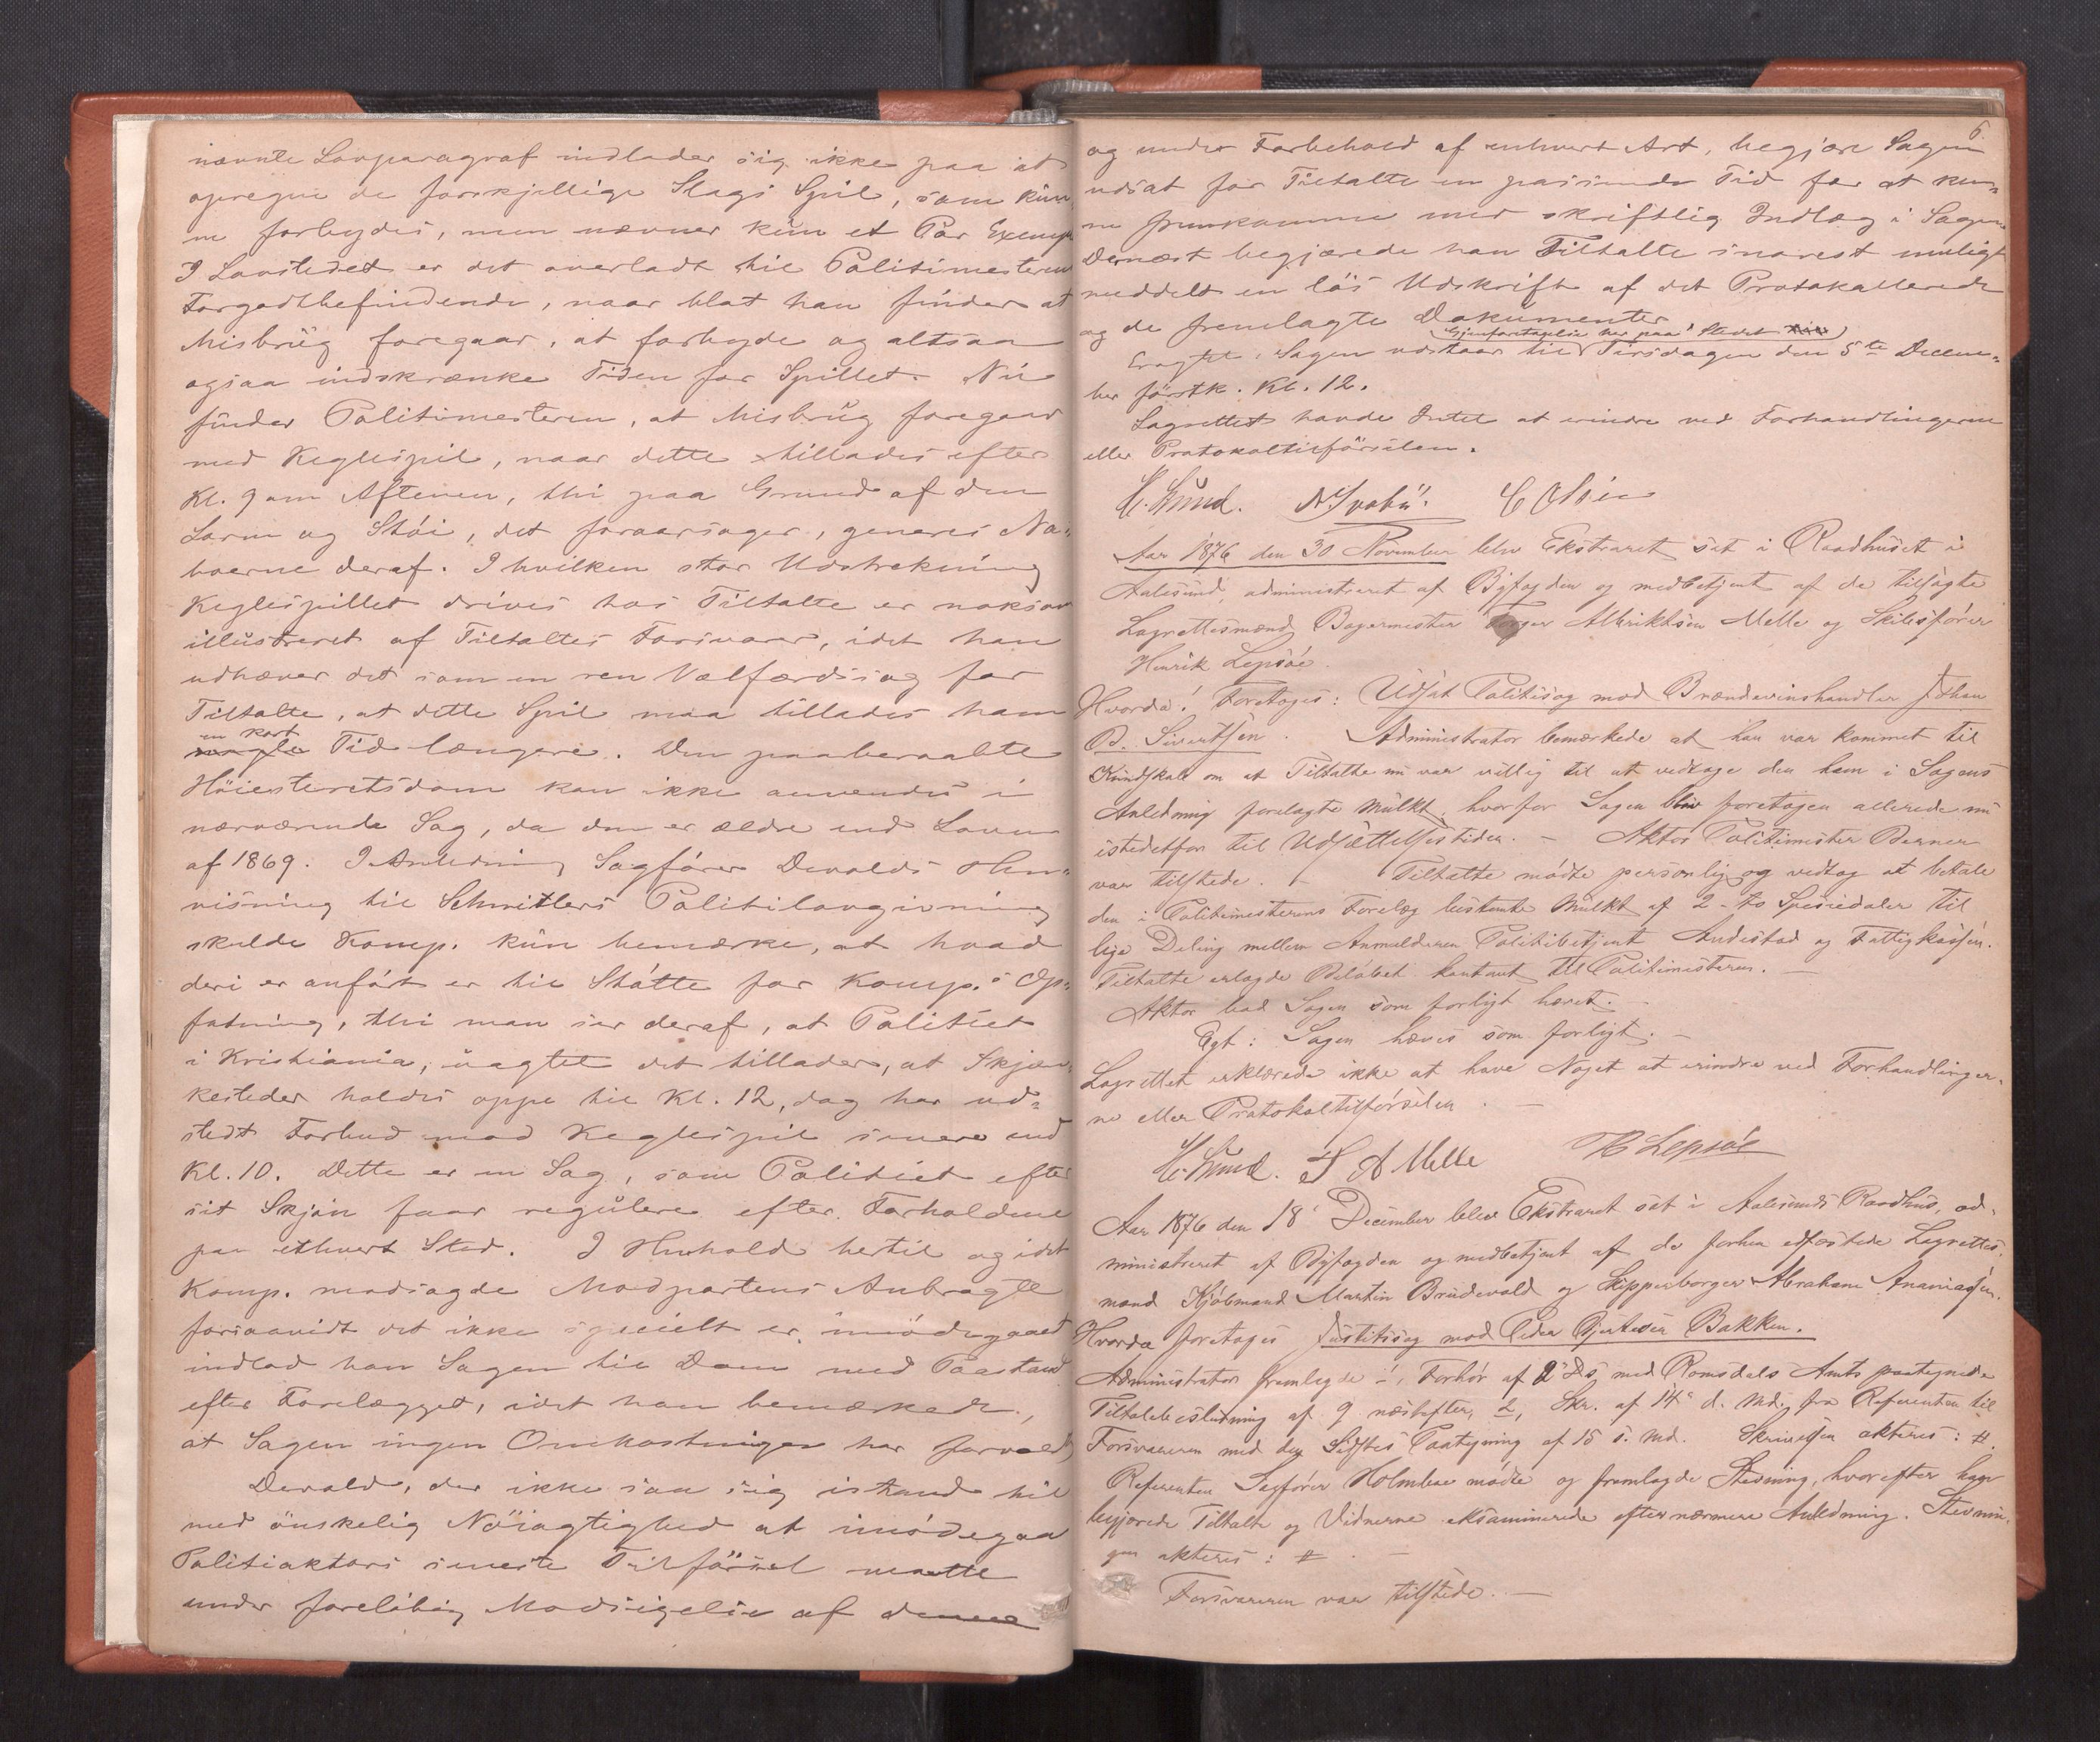 nævnte Lovparagraf indlader sig ikke paa at
opregne de forskjellige Slags Spil, som kun-
ne forbydes, men nævner kun et Par Exempl
I Lovstedet er det overladt til Politimesterens
Forgodtbefindende, naar blot han finder at
Misbrug foregaar, at forbyde og altsaa
ogsaa indskrænke Tiden for Spillet. Nu
finder Politimesteren, at Misbrug foregaar
med Keglespil, naar dette tillades efter
Kl. 9 om Aftenen, thi paa Grund af den
Larm og Støi, det foraarsager, generes Na-
boerne deraf. I hvilken stor Udstrekning
Keglespillet drives hos Tiltalte er noksom
illustreret af Tiltaltes Forsvarer, idet han
udhæver det som en ren Velfærdssag for
Tiltalte, at dette Spil maa tillades ham
en kort
nogle Tid længere. Den paaberaabte
Høiesteretsdom kan ikke anvendes i
nærværende Sag, da den er ældre end Loven
af 1869. I Anledning Sagfører Devolds Hen-
visning til Schmitlers Politilovgivning
skulde Komp. kun bemærke, at hvad
deri er anført er til Støtte for Komp.s Op-
fatning, thi man ser deraf, at Politiet
i Kristiania, uagtet det tillader, at Skjæn-
kesteder holdes oppe til Kl. 12, dog har ud-
stedt Forbud mod Keglespil senere end
Kl. 10. Dette er en Sag, som Politiet efter
sit Skjøn faar regulere efter Forholdene
paa ethvert Sted. I Henhold hertil og idet
Komp. modsagde Modpartens Anbragte
forsaavidt det ikke specielt er imødegaaet
indlod han Sagen til Dom med Paastand
efter Forelægget, idet han bemærkede,
at Sagen ingen Omkostninger har forvoldt
Devold, der ikke saa sig istand til
med ønskelig Nøiagtighed at imødegaa
Politiaktors seneste Tilførsel maatte
under foreløbig Modsigelse af denne
6.
og under Forbehold af enhver Art, begjære Sagen
udsat for Tiltalte en passende Tid for at kun-
ne fremkomme med skriftlig Indlæg i Sagen
Dernæst begjærede han Tiltalte snarest muligt
meddelt en løs Udskrift af det Protokollerede
og de fremlagte Dokumenter
Gjenforetagelse her paa Stedet
Eragtet: Sagen udstaar til Tirsdagen den 5te Decem-
ber førstk. Kl. 12.
Lagrettet havde Intet at erindre ved Forhandlingerne
eller Protokoltilførselen.
H. Lund. N Svabü. C Olsen
Aar 1876 den 30 November blev Ekstraret sat i Raadhuset i
Aalesund, administreret af Byfogden og medbetjent af de tilsagte
Lagrettesmænd Bagermester Torger Alberiktsen Melle og Skibsfører
Henrik Lepsøe.
Hvorda! Foretoges: Udsat Politisag mod Brændevinshandler Johan
B. Sivertsen. Administrator bemærkede at han var kommet til
Kundskab om at Tiltalte nu var villig til at vedtage den ham i Sagens
Anledning forelagte Mulkt, hvorfor Sagen blev foretagen allerede nu
istedetfor til Udsættelsestiden. - Aktor Politimester Berner
var tilstede. - Tiltalte mødte personlig og vedtog at betale
den i Politimesterens Forelæg bestemte Mulkt af 2 - to Speciedaler til
lige Deling mellem Anmelderen Politibetjent Andestad og Fattigkassen.
Tiltalte erlagde Beløbet kontant til Politimesteren. -
Aktor bad Sagen som forligt hævet. -
Egt: Sagen hæves som forligt. -
Lagrettet erklærede ikke at have Noget at erindre ved Forhandlinger-
ne eller Protokoltilførselen. -
H. Lund. T A Melle H Lepsøe
Aar 1876 den 18 December blev Ekstraret sat i Aalesunds Raadhus, ad-
ministreret af Byfogden og medbetjent af de forhen edfæstede Lagrettes-
mænd Kjøbmand Martin Brudevold og Skipperborger Abraham Ananiassen.
Hvorda foretoges Justitssag mod Peder Bakken.
Administrator fremlagde 1, Forhør af 2 Ds. med Romsdals Amts paategnede
Tiltalebeslutning af 9 næstefter, 2, Skr. af 14 d. Md. fra Referenten til
Forsvareren med dens Sidstes Paategning af 15 s. Md. Skrivelsen akteres: #.
Referenten Sagfører Holmboe mødte og fremlagde Stevning, hvorefter han
begjærede Tiltalte og Vidnerne eksaminerede efter nærmere Anledning. Stevnin-
gen akteres: # . -
Forsvareren var tilstede. -